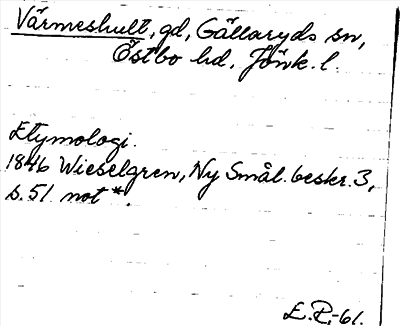 Värmeshult, gd, Gällaryds sn,
Östbo hd, Jönk. l.
Etymologi.
1846 Wieselgren, Ny Smål. beskr. 3,
s. 51 not *.
E.P.-61.